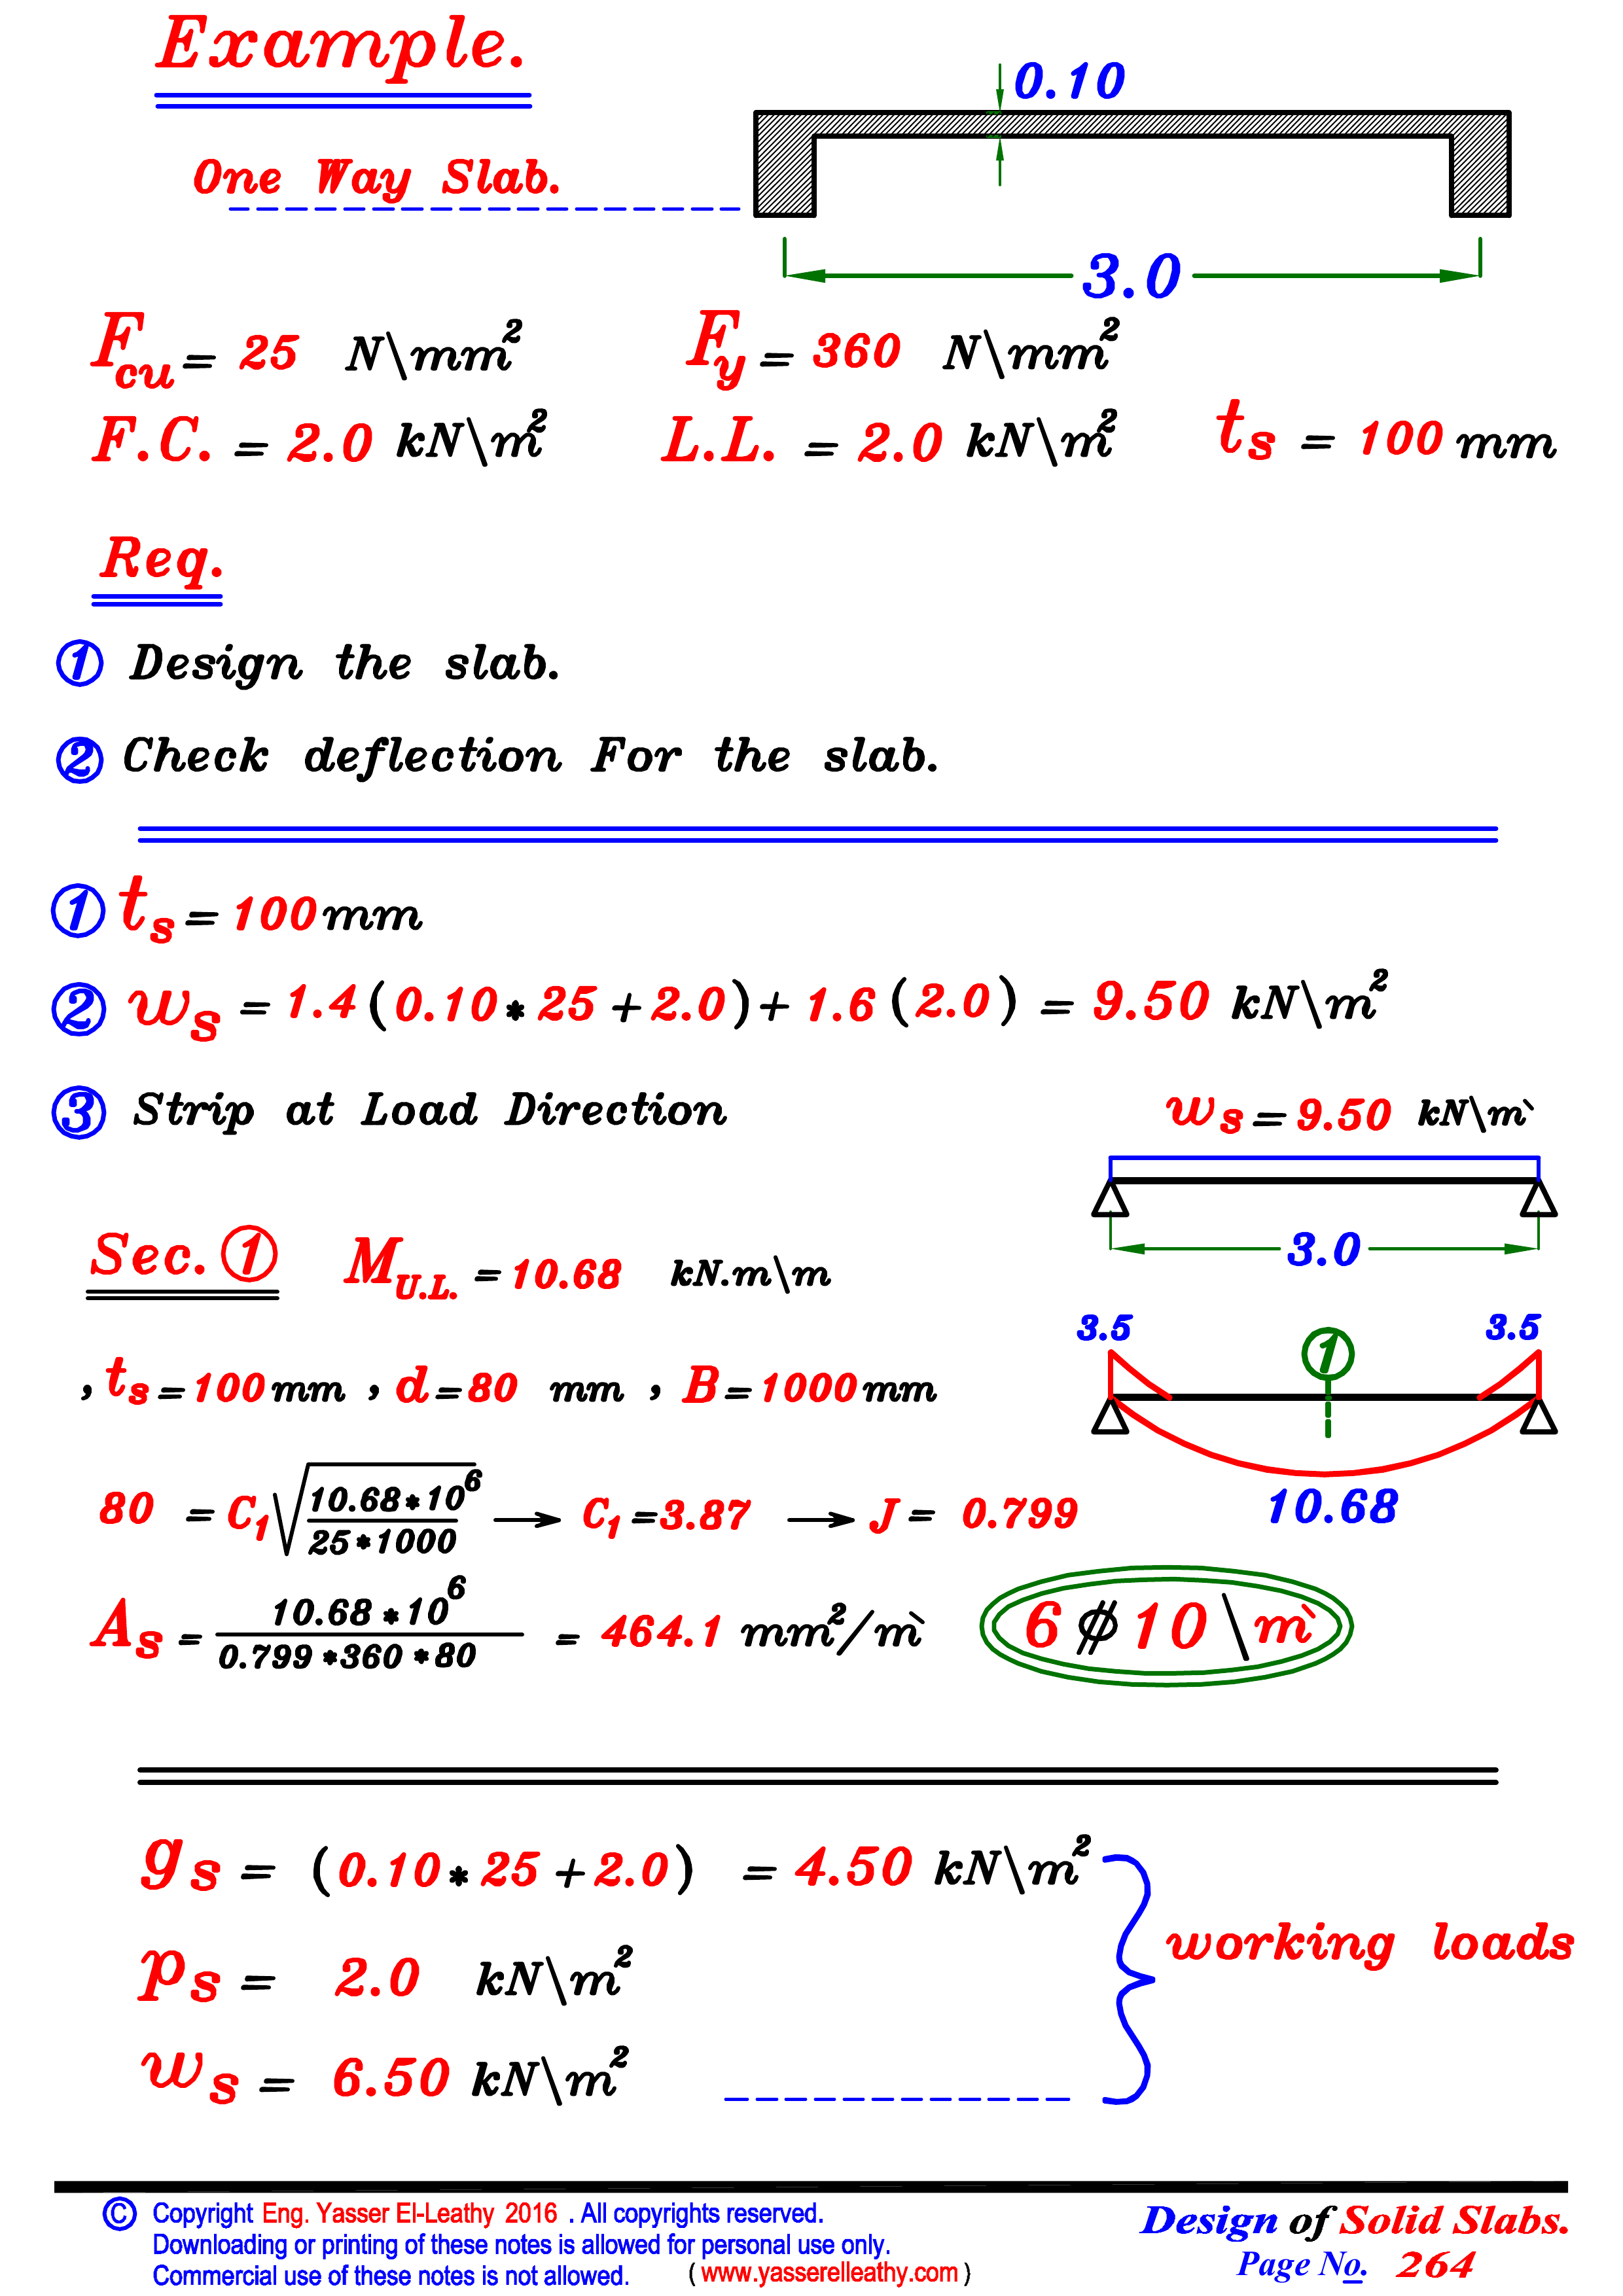 Example.
0.10
One Way Slab.
3.0
Fcu = 25 N\mm² Fy = 360 N\mm²
F.C. = 2.0 kN\m² L.L. = 2.0 kN\m² ts = 100 mm
Req.
① Design the slab.
② Check deflection For the slab.
① ts = 100 mm
② ws = 1.4 (0.10 * 25 + 2.0) + 1.6 (2.0) = 9.50 kN\m²
③ Strip at Load Direction
ws = 9.50 kN\m`
3.0
Sec. ① MU.L. = 10.68 kN.m\m
3.5 ① 3.5
, ts = 100 mm , d = 80 mm , B = 1000 mm
80 = C1 √(10.68 * 10⁶ / 25 * 1000) → C1 = 3.87 → J = 0.799
10.68
As = 10.68 * 10⁶ / 0.799 * 360 * 80 = 464.1 mm²/m` 6 ϕ 10 \m`
gs = (0.10 * 25 + 2.0) = 4.50 kN\m²
ps = 2.0 kN\m²
working loads
ws = 6.50 kN\m²
© Copyright Eng. Yasser El-Leathy 2016 . All copyrights reserved.
Downloading or printing of these notes is allowed for personal use only.
Commercial use of these notes is not allowed. ( www.yasserelleathy.com )
Design of Solid Slabs.
Page No. 264